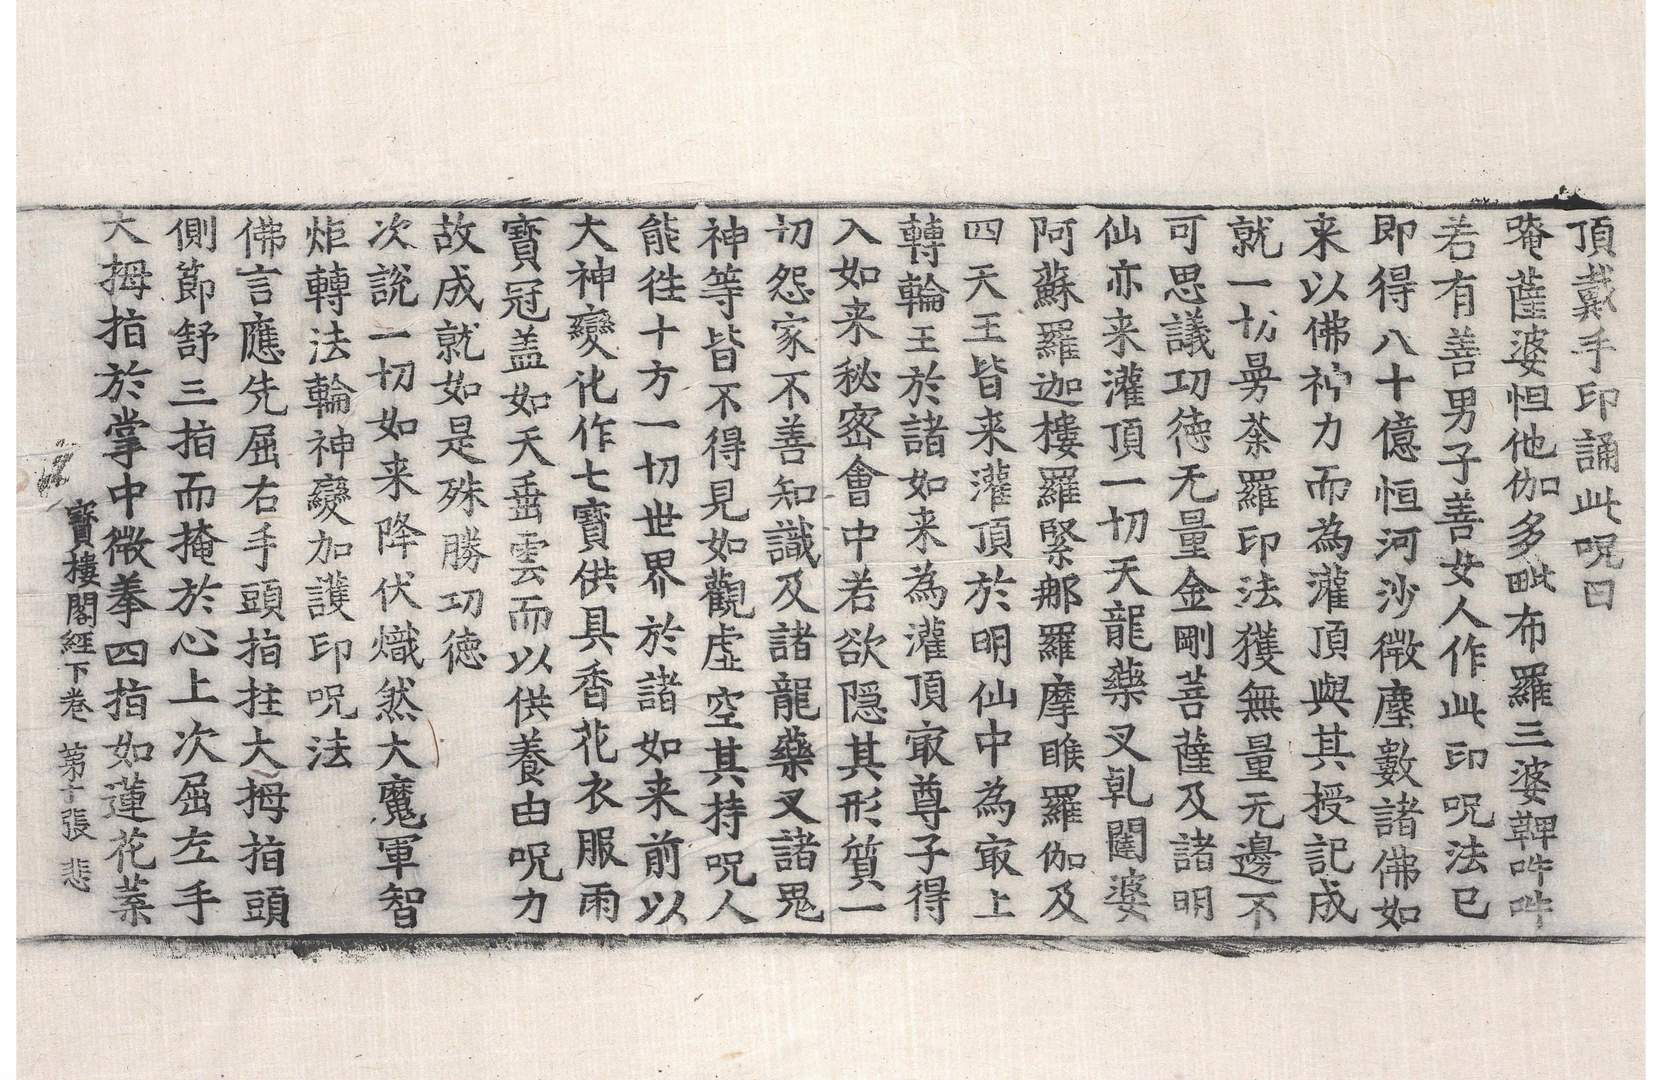 頂戴手印誦此呪曰
唵薩婆怛他伽多毗布羅三婆鞞吽吽
若有善男子善女人作此印呪法已
即得八十億恒河沙微塵數諸佛如
来以佛神力而為灌頂與其授記成
就一切曼荼羅印法獲無量无邊不
可思議功徳无量金剛菩薩及諸明
仙亦来灌頂一切天龍藥叉乹闥婆
阿蘇羅迦樓羅緊那羅摩睺羅伽及
四天王皆来灌頂於明仙中為㝡上
轉輪王於諸如来為灌頂㝡尊子得
入如来秘密會中若欲隠其形質一
切怨家不善知識及諸龍藥叉諸鬼
神等皆不得見如觀虚空其持呪人
能徃十方一切世界於諸如来前以
大神變化作七寶供具香花衣服雨
寶冠盖如天垂雲而以供養由呪力
故成就如是殊勝功徳
次說一切如来降伏熾然大魔軍智
炬轉法輪神變加護印呪法
佛言應先屈右手頭指拄大拇指頭
側節舒三指而掩於心上次屈左手
大拇指於掌中微拳四指如蓮花葉
寶樓閣經下卷 第十張 悲